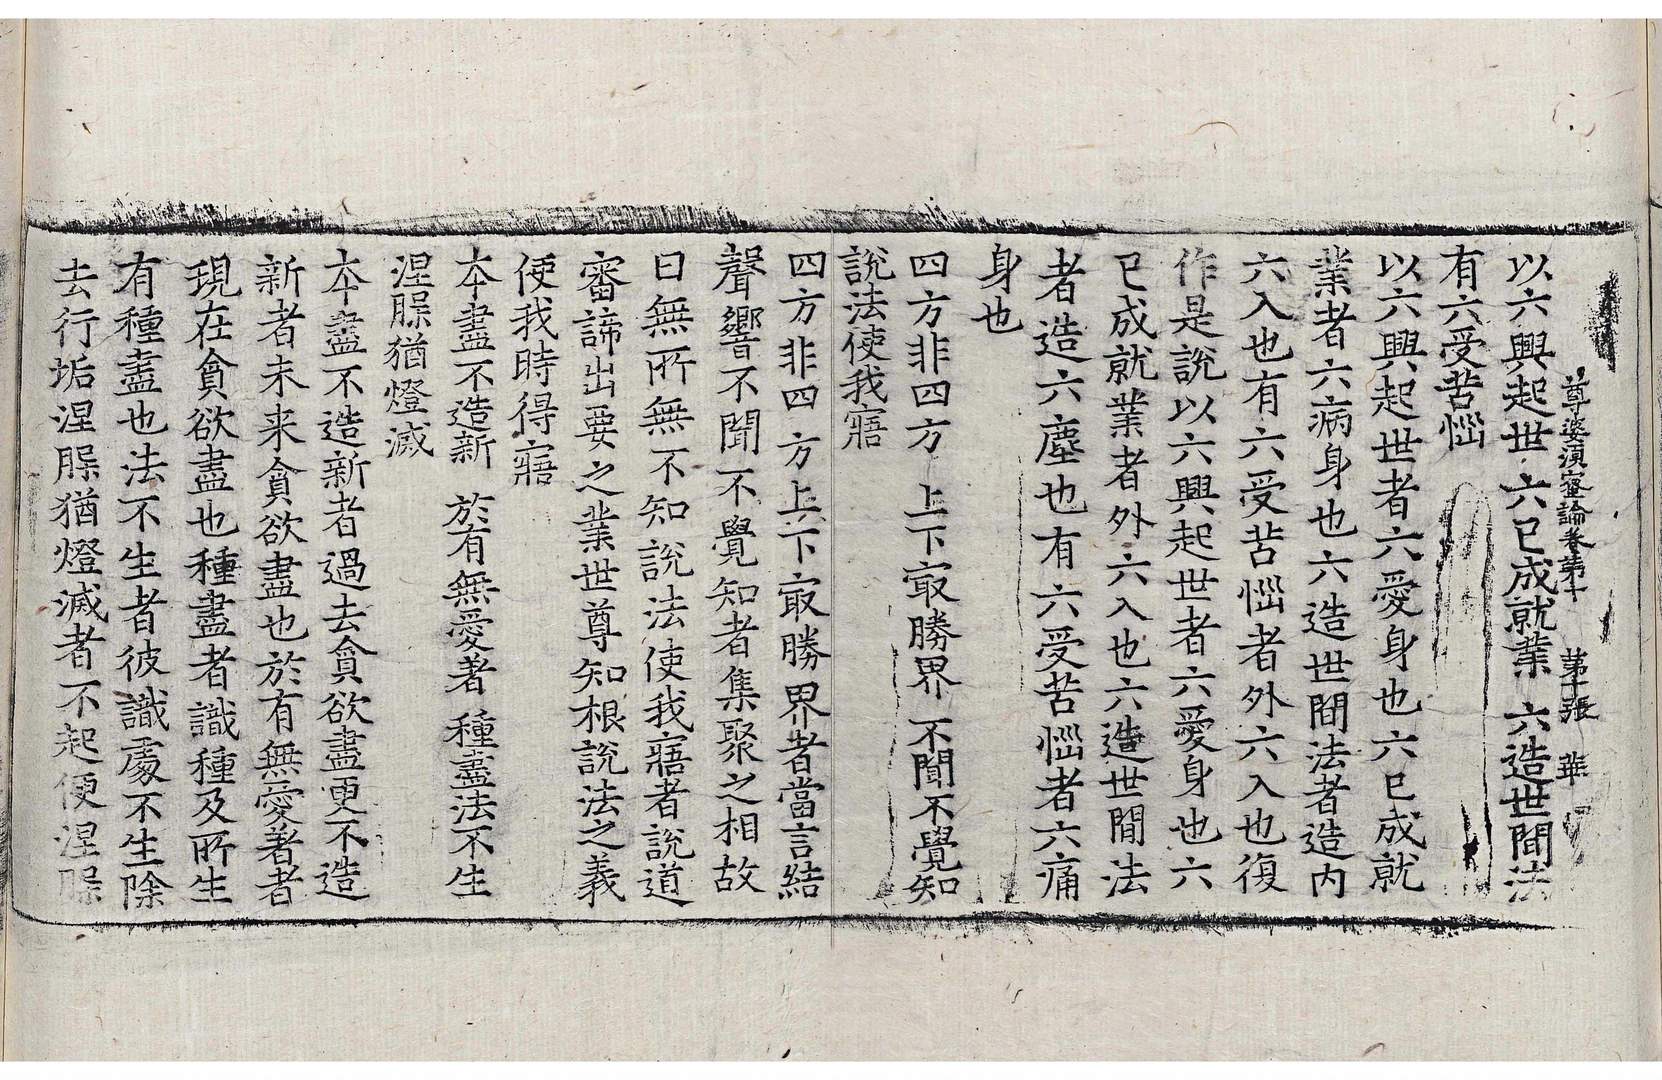 尊婆須蜜論卷第十 第十張 華
以六興起世 六已成就業 六造世間法
有六受苦惱
以六興起世者六愛身也六已成就
業者六病身也六造世間法者造內
六入也有六受苦惱者外六入也復
作是說以六興起世者六愛身也六
已成就業者外六入也六造世間法
者造六塵也有六受苦惱者六痛
身也
四方非四方 上下㝡勝界 不聞不覺知
說法使我寤
四方非四方上下㝡勝界者當言結
聲響不聞不覺知者集聚之相故
曰無所無不知說法使我寤者說道
審諦出要之業世尊知根說法之義
便我時得寤
本盡不造新 於有無愛著 種盡法不生
涅槃猶燈滅
本盡不造新者過去貪欲盡更不造
新者未来貪欲盡也於有無愛著者
現在貪欲盡也種盡者識種及所生
有種盡也法不生者彼識處不生除
去行垢涅槃猶燈滅者不起便涅槃